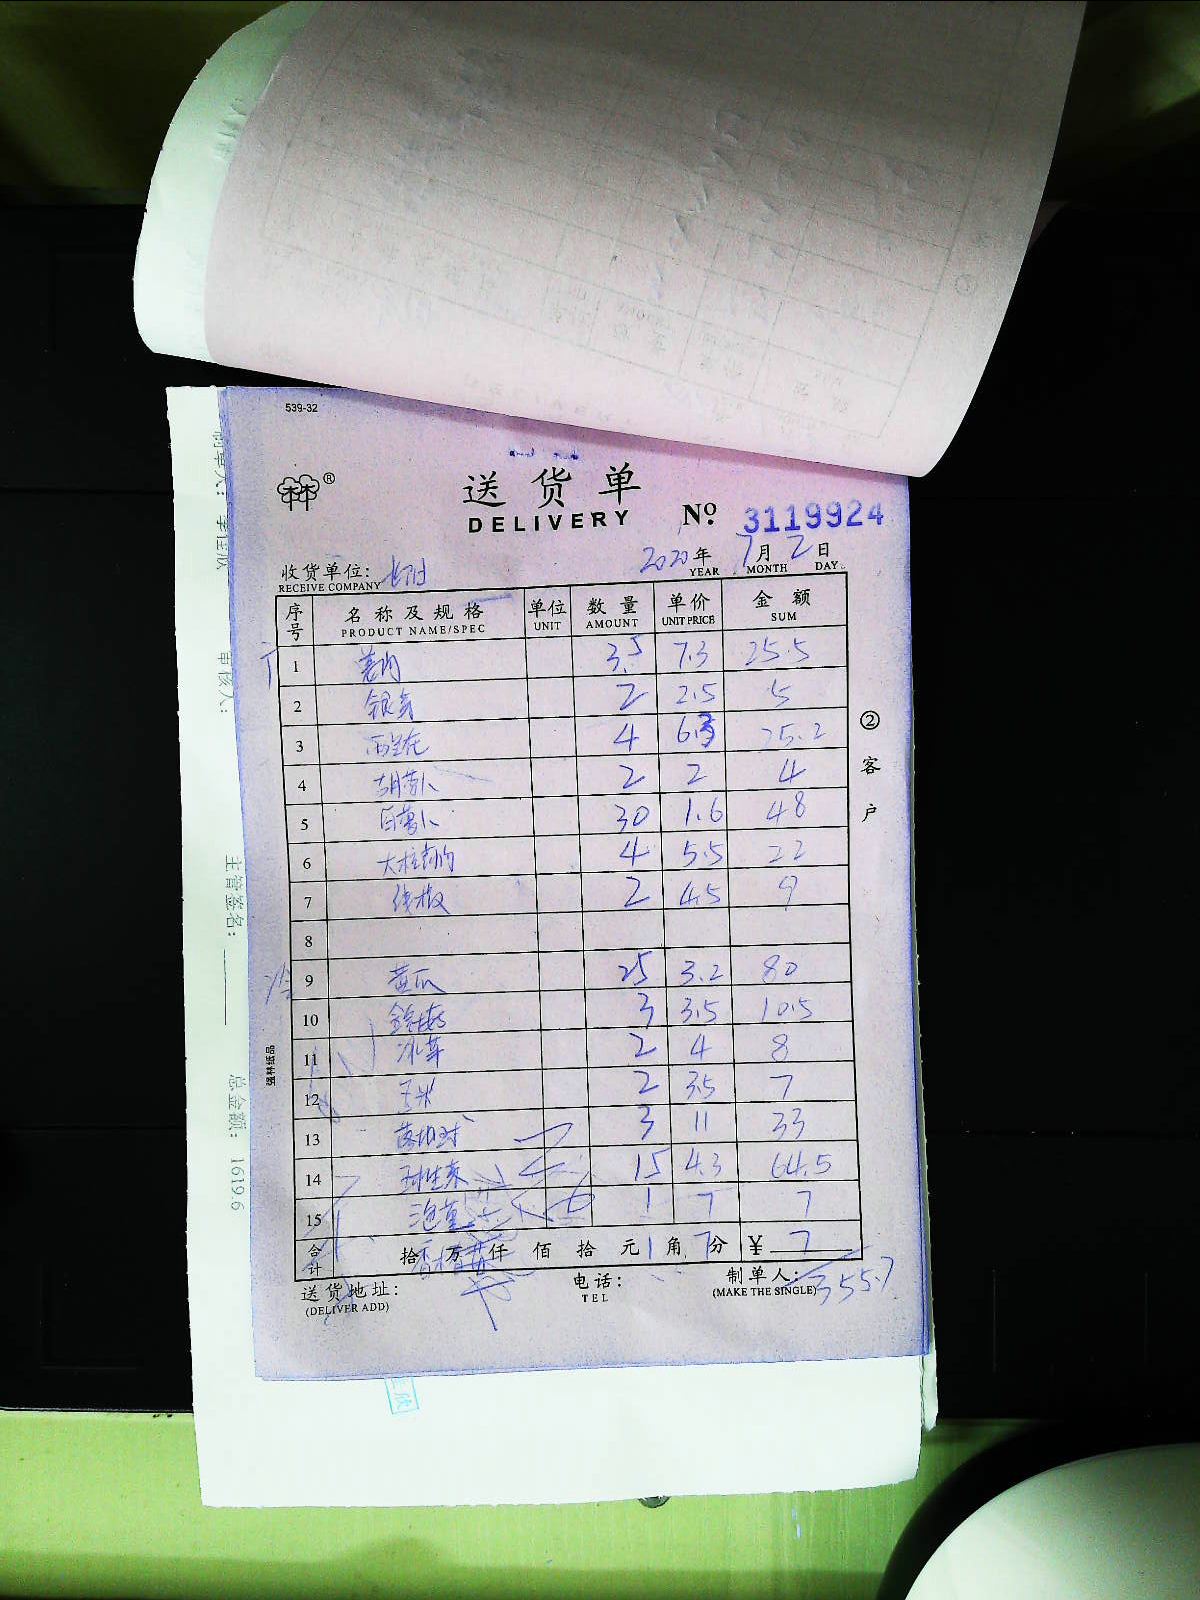 539-32
送货单
DELIVERY
№ 3119924
2020年 7月 2日
YEAR MONTH DAY
收货单位:
RECEIVE COMPANY
序号 名称及规格 单位 数量 单价 金额
PRODUCT NAME/SPEC UNIT AMOUNT UNIT PRICE SUM
1 3.5 7.3 25.5
2 银芽 2 2.5 5
3 西兰花 4 6.3 25.2
4 胡萝卜 2 2 4
5 白萝卜 30 1.6 48
6 4 5.5 22
7 线椒 2 4.5 9
8
9 黄瓜 25 3.2 80
10 金针菇 3 3.5 10.5
11 冰草 2 4 8
12 玉米 2 3.5 7
13 3 11 33
14 15 4.3 64.5
15 泡姜 1 7 7
合计 拾 万 仟 佰 拾 元 1 角 7 分 ¥ 7
355.7
送货地址:
(DELIVER ADD)
电话:
TEL
制单人:
(MAKE THE SINGLE)
②客户
强林纸品
审核人:
主管签名:
总金额: 1619.6